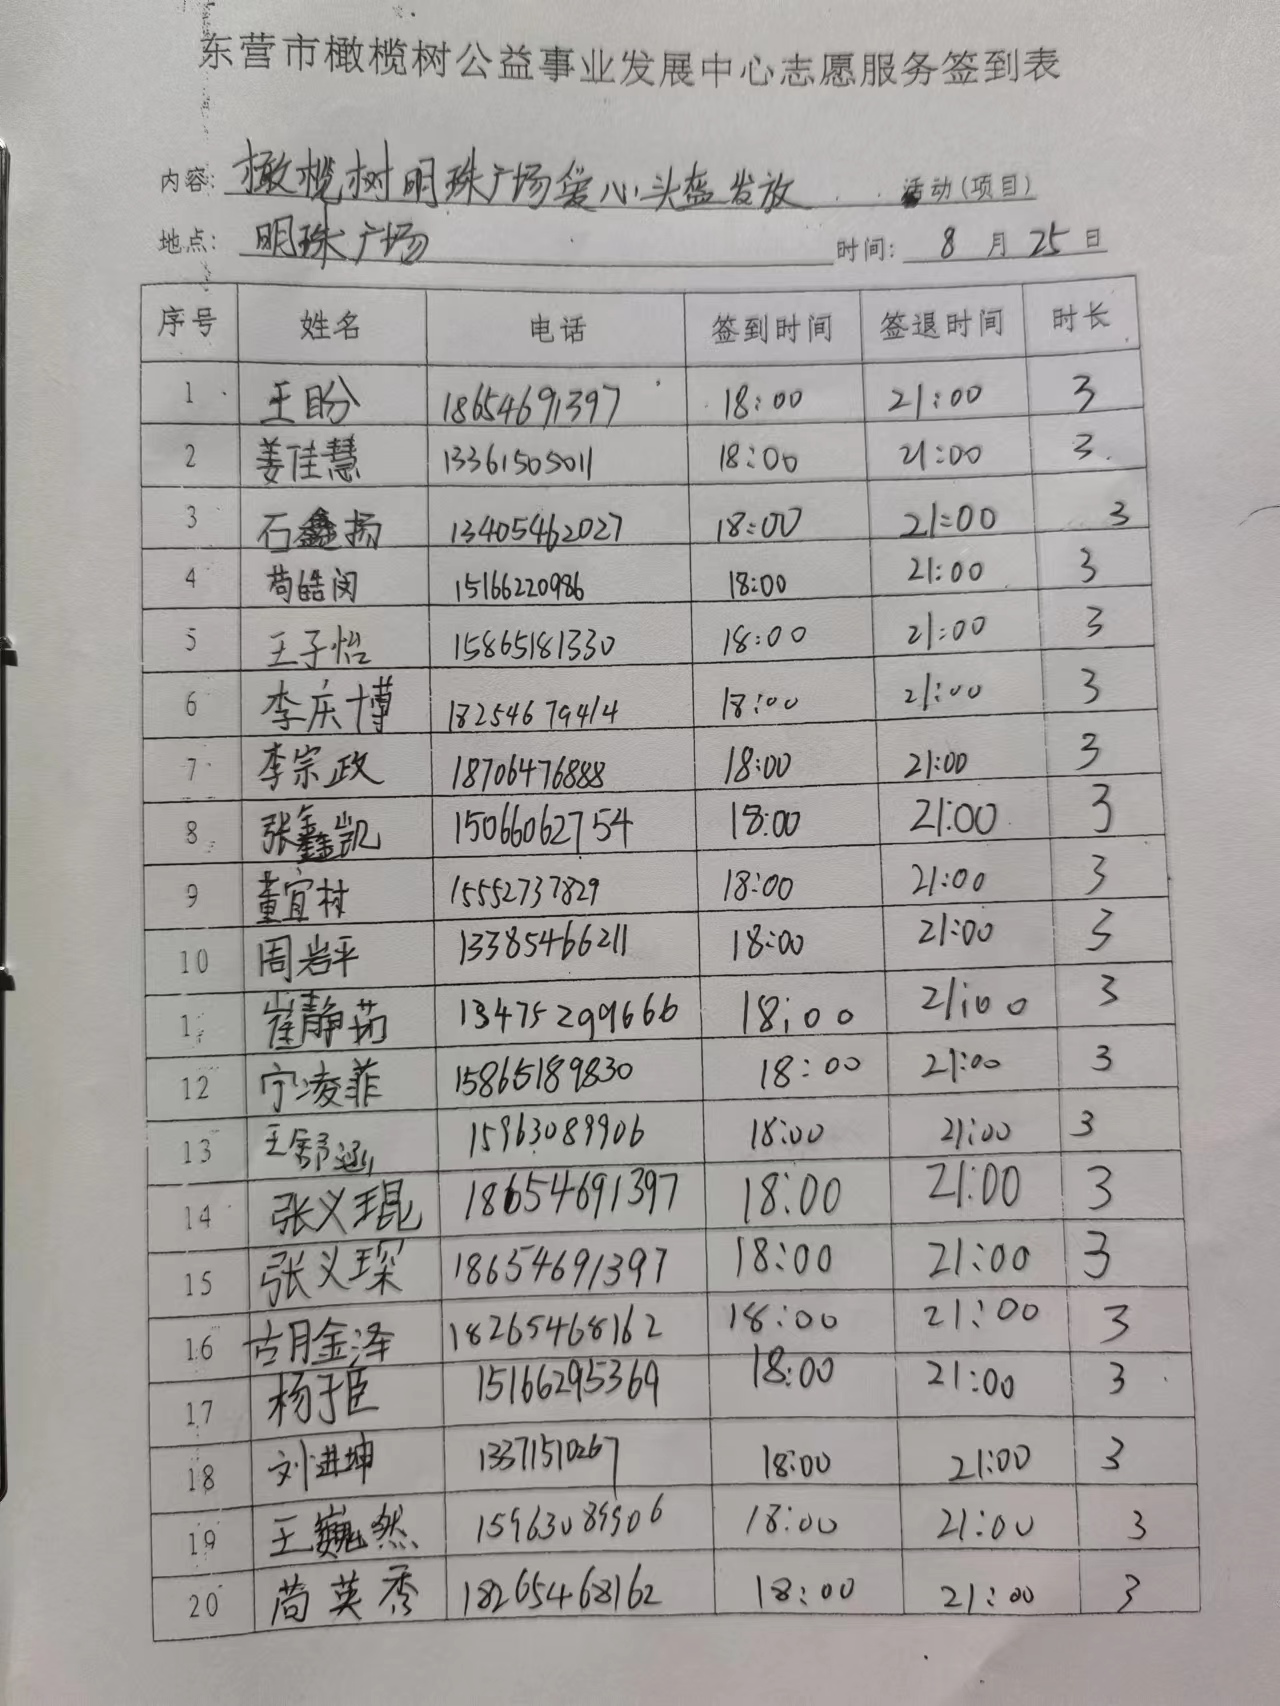 东营市橄榄树公益事业发展中心志愿服务签到表
内容: 橄榄树明珠广场爱心头盔发放 活动(项目)
地点: 明珠广场 时间: 8 月 25 日
序号 姓名 电话 签到时间 签退时间 时长
1 王盼 18654691397 18:00 21:00 3
2 姜佳慧 13361505011 18:00 21:00 3
3 石鑫扬 13405462027 18:00 21:00 3
4 苟皓闵 15166220986 18:00 21:00 3
5 王子怡 15865181330 18:00 21:00 3
6 李庆博 18254679414 18:00 21:00 3
7 李宗政 18706476888 18:00 21:00 3
8 张鑫凯 15066062754 18:00 21:00 3
9 董宜村 15552737829 18:00 21:00 3
10 周岩平 13385466211 18:00 21:00 3
1 崔静茹 13475299666 18:00 21:00 3
12 宁凌菲 15865189830 18:00 21:00 3
13 王舒涵 15963089906 18:00 21:00 3
14 张义琨 18654691397 18:00 21:00 3
15 张义琛 18654691397 18:00 21:00 3
16 胡金泽 18265468162 18:00 21:00 3
17 杨子臣 15166295369 18:00 21:00 3
18 刘进坤 13371510267 18:00 21:00 3
19 王巍然 15963089906 18:00 21:00 3
20 苘英秀 18265468162 18:00 21:00 3